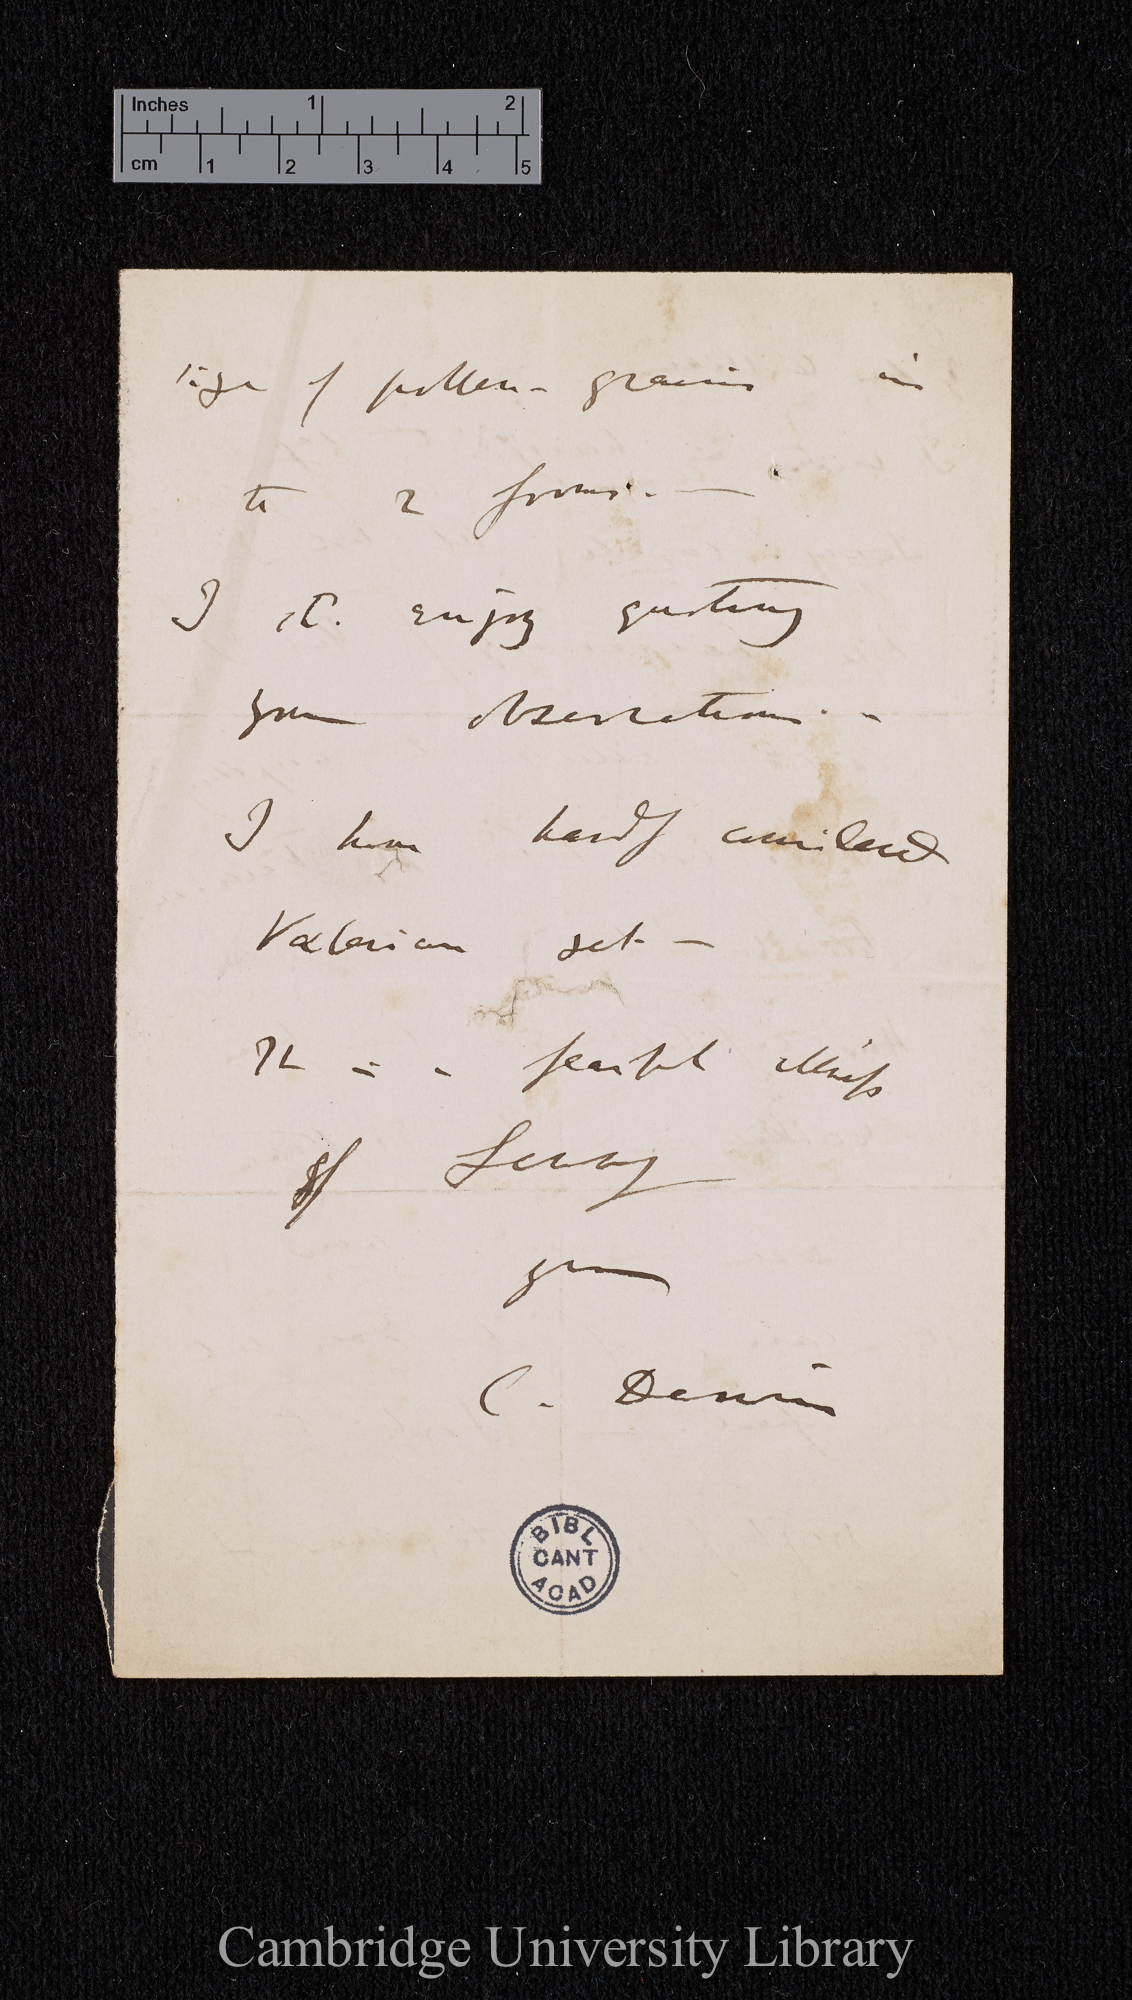 Inches 1 2
cm 1 2 3 4 5
size of pollen-grains in
the 2 forms.—
I shd. enjoy quoting
your observations.—
I have hardly considered
Valerian yet—
This is a fearful illness
of Lenny
yours
C. Darwin
BIBL
CANT
ACAD
Cambridge University Library